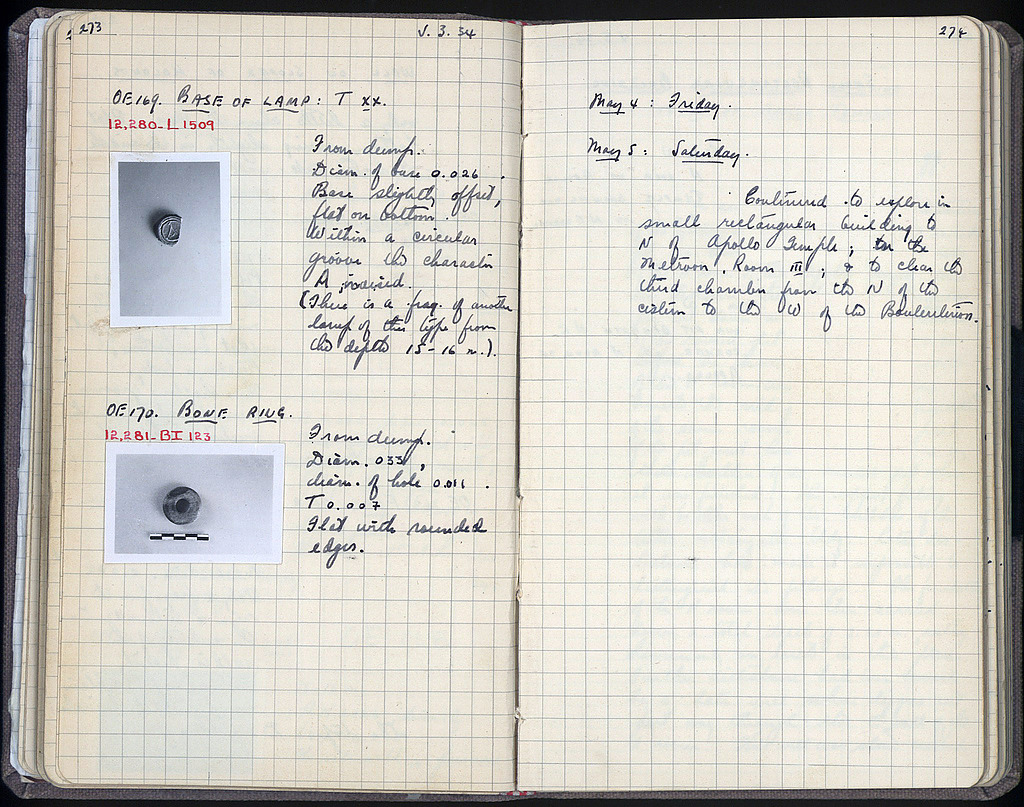 273
V. 3. 34
OE 169. BASE OF LAMP: T XX.
12,280-L 1509
From dump.
Diam. of base 0.026.
Base slightly offset,
flat on bottom.
Within a circular
groove the character
A, raised.
(There is a frag. of another
lamp of this type from
the depth 15-16 m.).
OE 170. BONE RING.
12,281-BI 123
From dump.
Diam. 033,
diam. of hole 0.011.
T 0.007
Flat with rounded
edges.
274
May 4: Friday.
May 5: Saturday.
Continued to explore in
small rectangular building to
N of Apollo Temple; in the
Metroon, Room III; & to clear the
third chamber from the N of the
cistern to the W of the Bouleuterion.